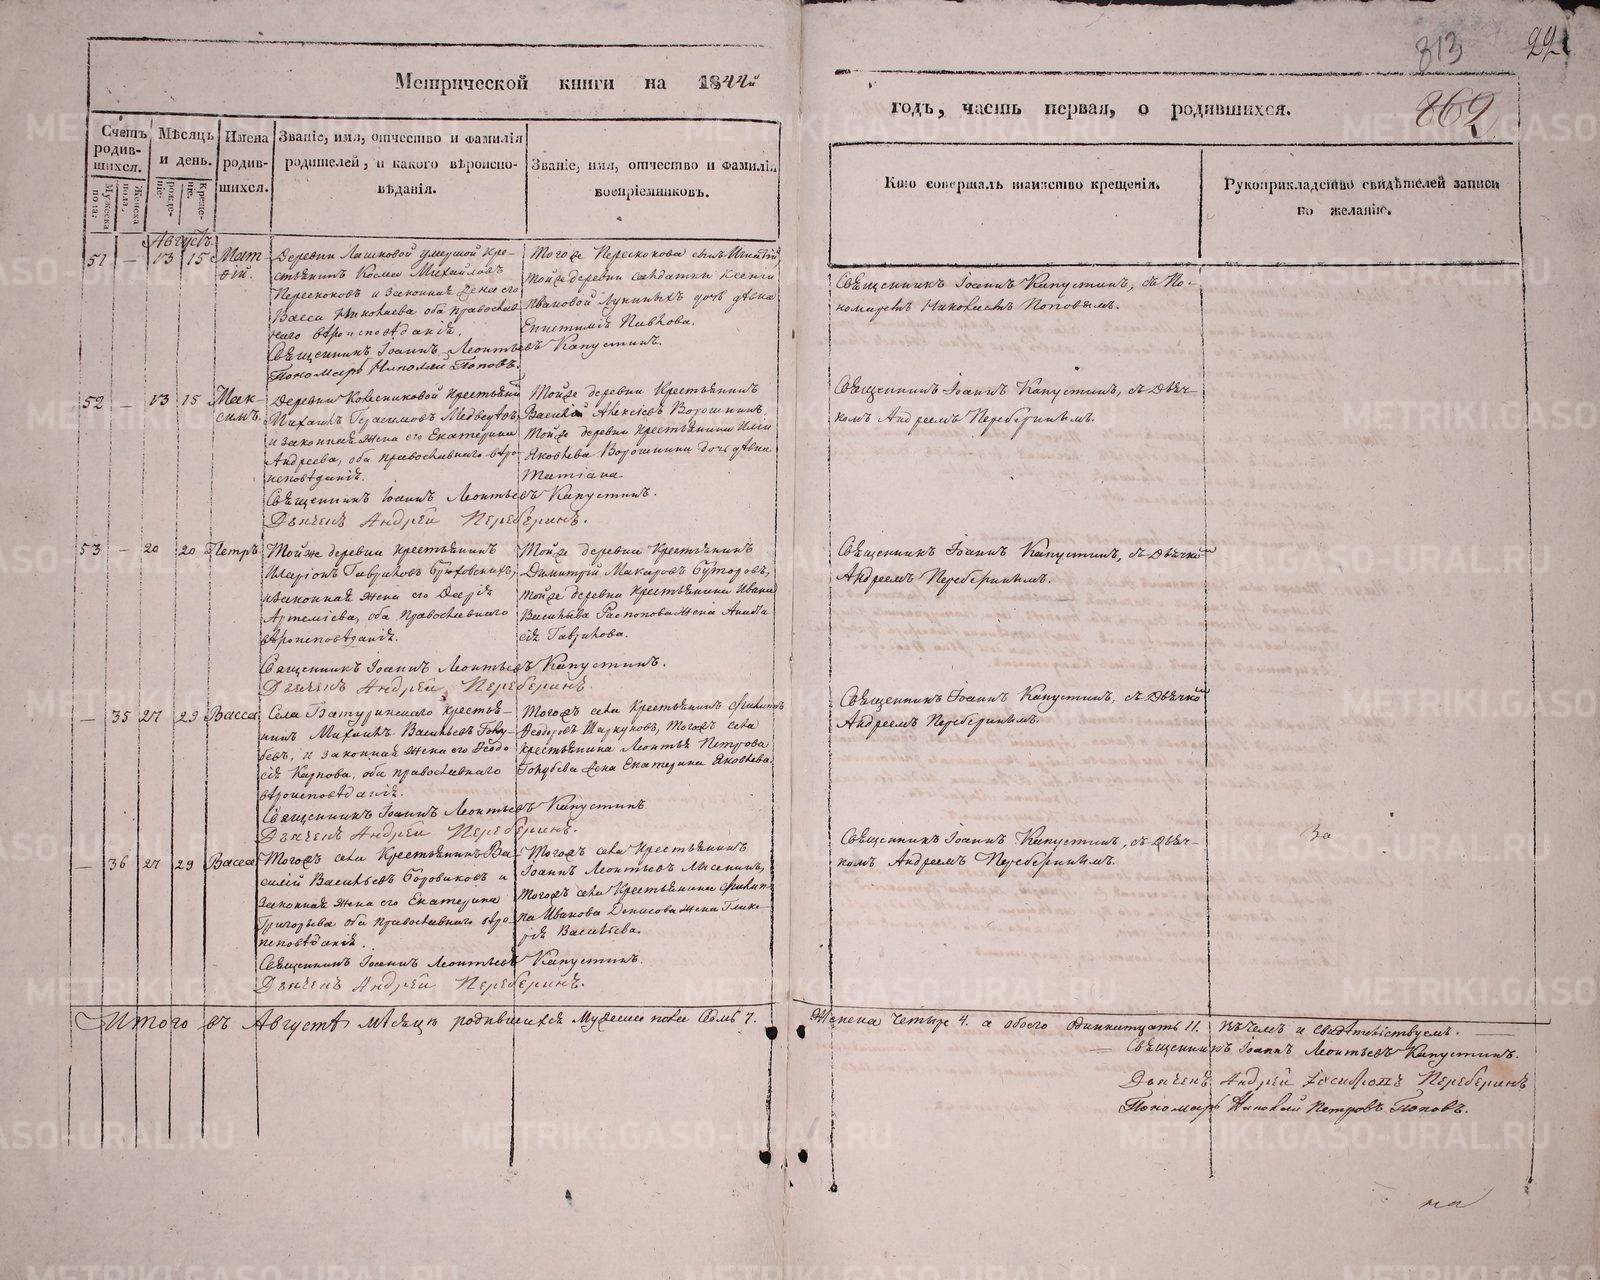 313
22
Метрической книги на 1844й
годъ, часть первая, о родившихся.
862
Счетъ родив-
шихся.
Мужеска
пола.
Женска
пола.
Мѣсяцъ
и день.
рожде-
ніе.
Креще-
ніе.
Имена
родив-
шихся.
Званіе, имя, отчество и фамилія
родителей, и какого вѣроиспо-
вѣданія.
Званіе, имя, отчество и фамилія
воспріемниковъ.
Кто совершалъ таинство крещенія.
Рукоприкладство свидѣтелей записи
по желанію.
Августъ
51 — 13 15 Мат-
ѳій.
Деревни умершой Кре-
стьянинъ Косма Михайловъ
Перескоковъ и Законная Жена его
Васса Николаева оба православ-
наго вѣроисповѣданія.
Тогоже Перескокова сынъ
Тойже деревни салдатки Ксенги
Ивановой дочь дѣвка
Священникъ Іоаннъ Леонтьевъ Капустинъ.
Пономарь Николай Поповъ.
Священникъ Іоаннъ Капустинъ, съ По-
номаремъ Николаемъ Поповымъ.
52 — 13 15 Мак-
симъ
Деревни Колесниковой Крестьянинъ
Михаилъ Герасимовъ Медведевъ,
и законная жена его Екатерина
Андреева, оба православнаго вѣро-
исповѣданія.
Тойже деревни Крестьянинъ
Василій Алексѣевъ Ворошнинъ,
Тойже деревни крестьянина Ильи
Яковлева Ворошнина дочь дѣвка
Татіана
Священникъ Іоаннъ Леонтьевъ Капустинъ.
Дьячекъ Андрей Переберинъ.
Священникъ Іоаннъ Капустинъ, съ Дьяч-
комъ Андреемъ Переберинымъ.
53 — 20 20 Петръ
Тойже деревни крестьянинъ
Иларіонъ Гавриловъ
и законная жена его Дарія
Артемьева, оба Православнаго
вѣроисповѣданія.
Тойже деревни Крестьянинъ
Димитрій Макаровъ Буторовъ,
Тойже деревни крестьянина Ивана
Васильева Распопова жена
Гаврилова.
Священникъ Іоаннъ Леонтьевъ Капустинъ.
Дьячекъ Андрей Переберинъ.
Священникъ Іоаннъ Капустинъ, съ Дьячкомъ
Андреемъ Переберинымъ.
— 35 27 29 Васса
Села Батуринскаго крестья-
нинъ Михаилъ Васильевъ Голу-
бевъ, и законная жена его Ѳеодо-
сія Карпова, оба православнаго
вѣроисповѣданія.
Тогожъ села крестьянинъ Филипъ
Ѳеодоровъ Тогожъ села
крестьянина Леонтья Петрова
Голубева жена Екатерина Яковлева.
Священникъ Іоаннъ Леонтьевъ Капустинъ
Дьячекъ Андрей Переберинъ.
Священникъ Іоаннъ Капустинъ, съ Дьячкомъ
Андреемъ Переберинымъ.
— 36 27 29 Васса
Тогожъ села Крестьянинъ Ва-
силій Васильевъ Боровиковъ и
законная жена его Екатерина
Григорьева оба православнаго вѣро-
исповѣданія.
Тогожъ села Крестьянинъ
Іоаннъ Леонтьевъ
Тогожъ села Крестьянина Филип-
па Иванова Денисова жена Глике-
рія Васильева.
Священникъ Іоаннъ Леонтьевъ Капустинъ.
Дьячекъ Андрей Переберинъ.
Священникъ Іоаннъ Капустинъ, съ Дьяч-
комъ Андреемъ Переберинымъ.
За
Итого въ Августѣ мѣсяцѣ родившихся Мужеска пола Седмь 7. Женска Четыре 4. а обоего Одиннатцать 11. въ чемъ и свидѣтельствуемъ.
Священникъ Іоаннъ Леонтьевъ Капустинъ.
Дьячекъ Андрей Переберинъ
Пономарь Николай Петровъ Поповъ.
на
METRIKI.GASO-URAL.RU